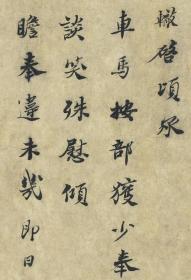 轍啓頃承
車馬按部獲少奉
談笑殊慰傾
瞻奉違未幾即日